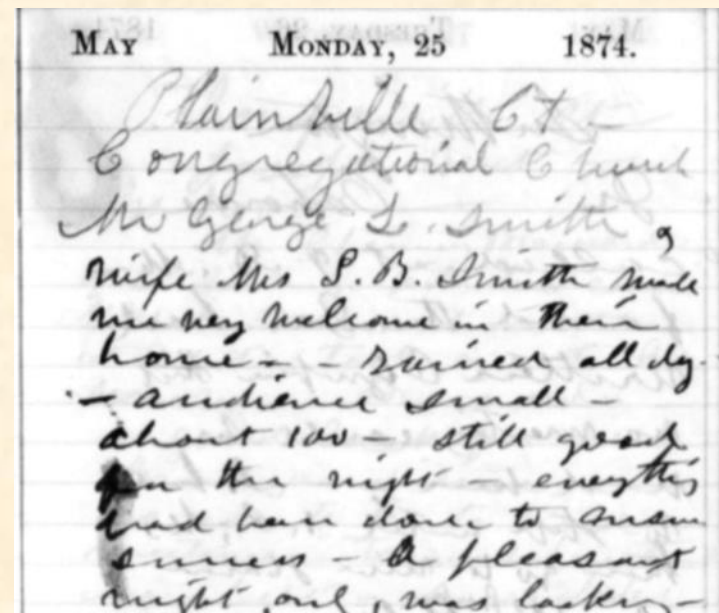 MAY MONDAY, 25 1874.
Plainville Ct -
Congregational Church
Mr George L. Smith &
wife Mrs S. B. Smith made
me very welcome in their
home - - rained all day
- audience small -
about 100 - still good
for the night - everything
had been done to insure
success - A pleasant
night only was lacking -